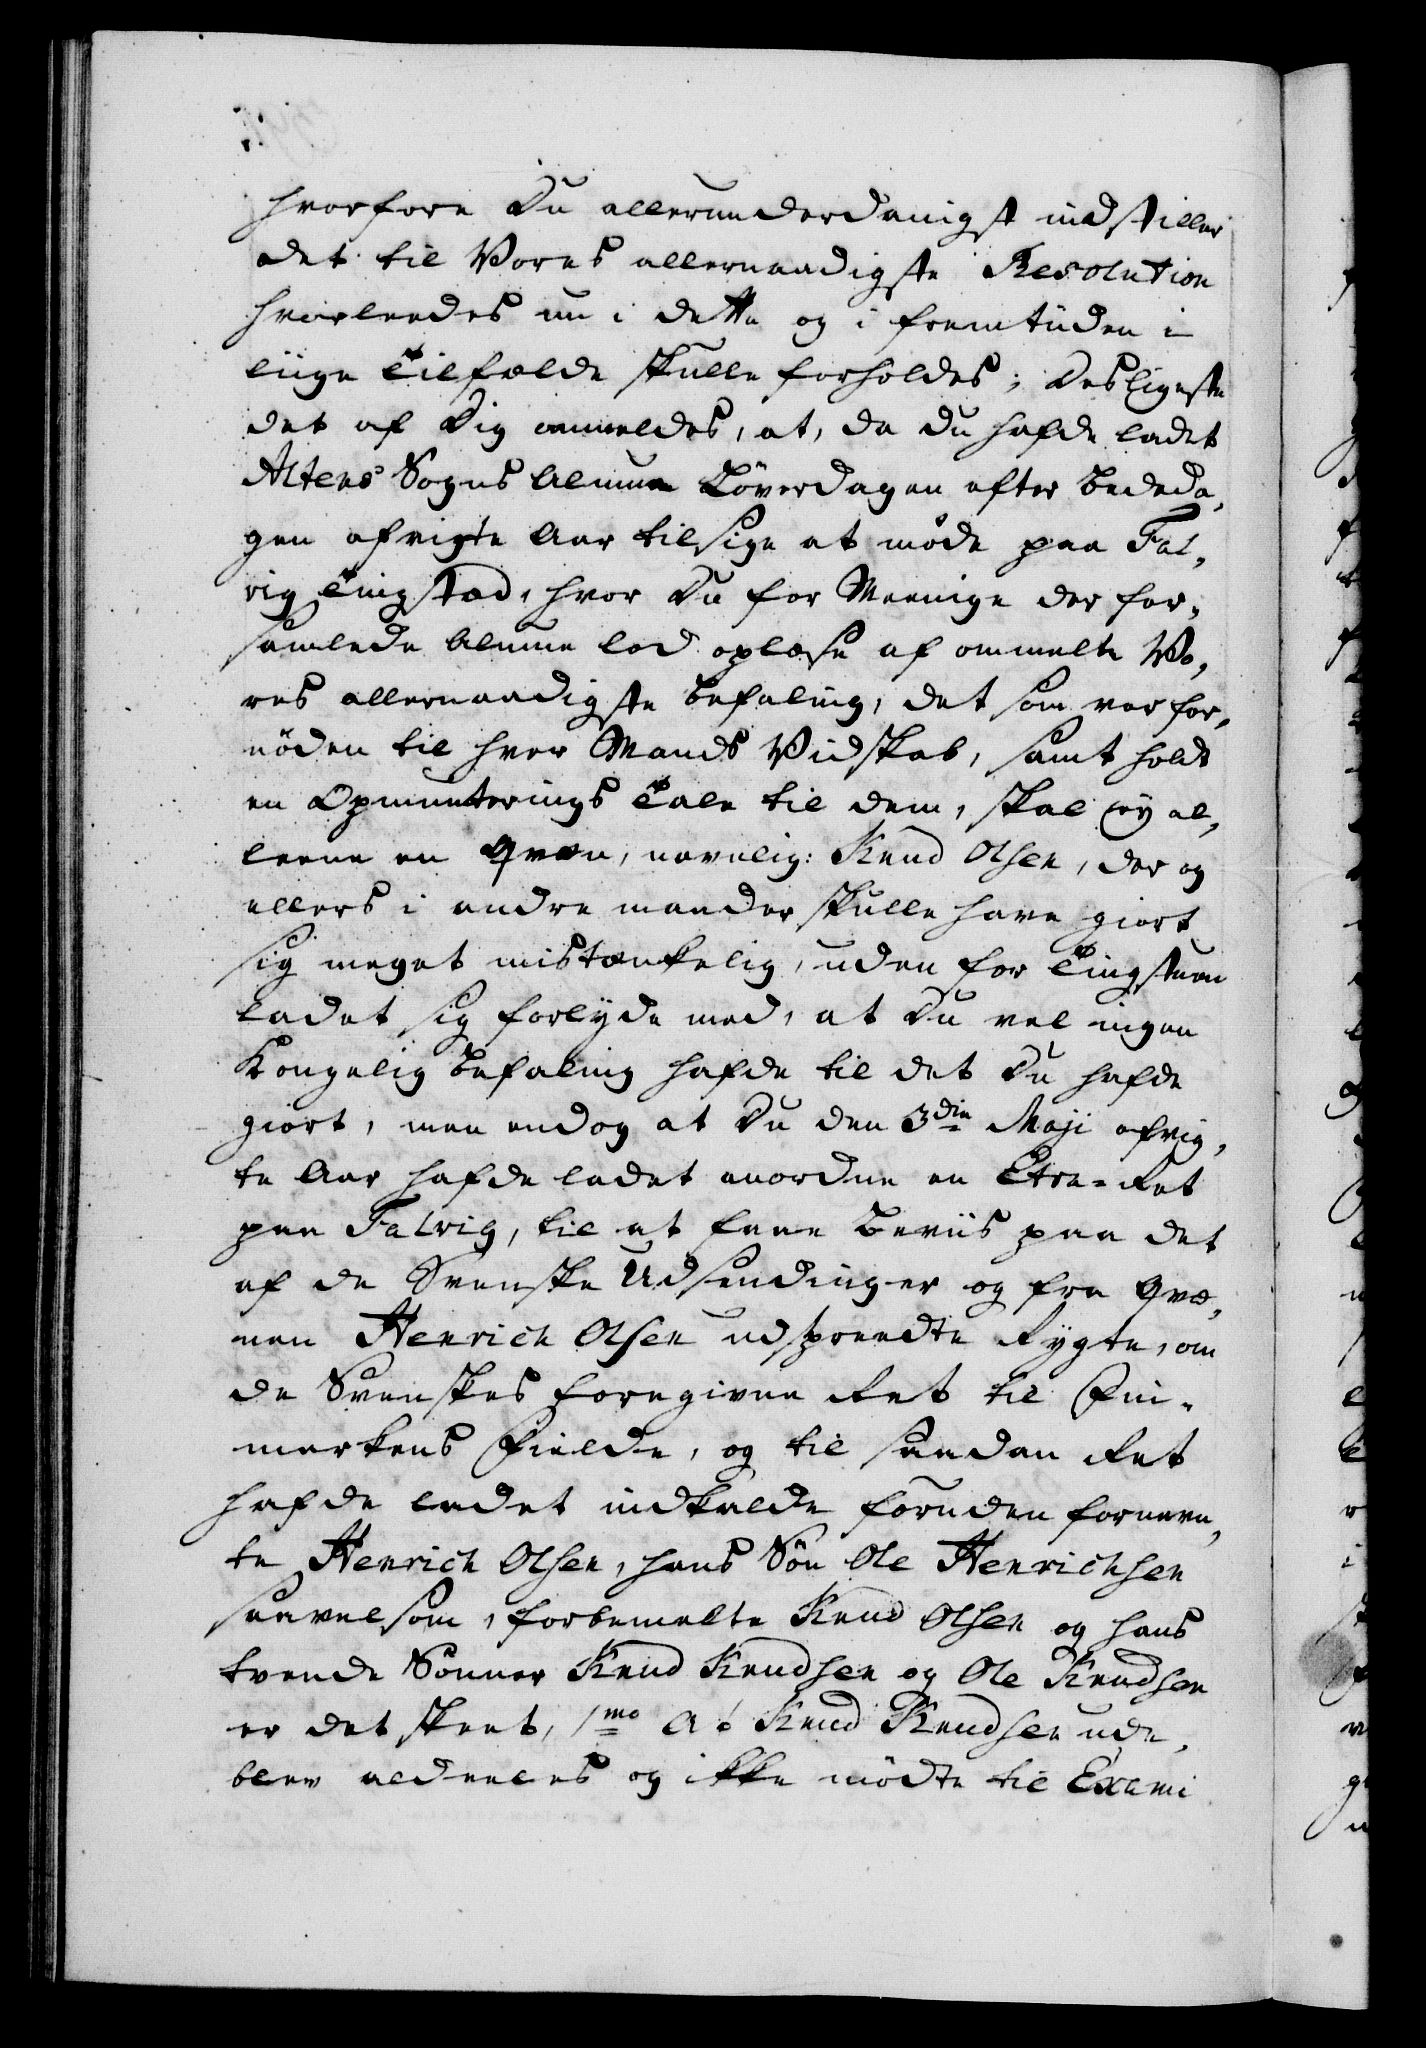 hvorfore Du allerunderdanigst indstiller
det til Vores allernaadigste Resolution
hvorledes nu i dette og i fremtiiden i
liige Tilfælde skulle forholdes; Desligeste
det af Dig anmeldes, at, da Du hafde ladet
Altens Sogns Almue Løverdagen efter Bededa,
gen afvigte Aar tilsige at møde paa Tal,
vig Tingstæd, hvor Du for Meenige der for,
samlede Almue lod oplæse af ommelte Vo,
res allernaadigste Befaling, det som var for,
nöden til hver Mands Vidskab, samt holdt
en Opmuntrings Tale til dem, skal ey al,
leene en Qvæn, navnlig: Knud Olsen, der og
ellers i andre maader skulle have giort
sig meget mistænkelig, uden for Tingstuen
ladet sig forlyde med, at Du vel ingen
Kongelig Befaling hafde til det Du hafde
giort, men endog at Du den 3die Maji afvig,
te Aar hafde ladet anordne en Etra-Ret
paa Talvig, til at faae Beviis paa det
af de Svenske Udsendinger og fra Qvæ,
nen Henrich Olsen udspreedte Rygte, om
de Svenskes foregivne Ret til Fin-
markens Fielde, og til saadan Ret
hafde ladet indkalde foruden fornevn,
te Henrich Olsen, hans Søn Ole Henrichsen
saavelsom, forbemelte Knud Olsen og hans
tvende Sønner Knud Knudsen og Ole Knudsen
er det skeet, 1mo At Knud Knudsen ude,
blev aldeeles og ikke mødte til Exami